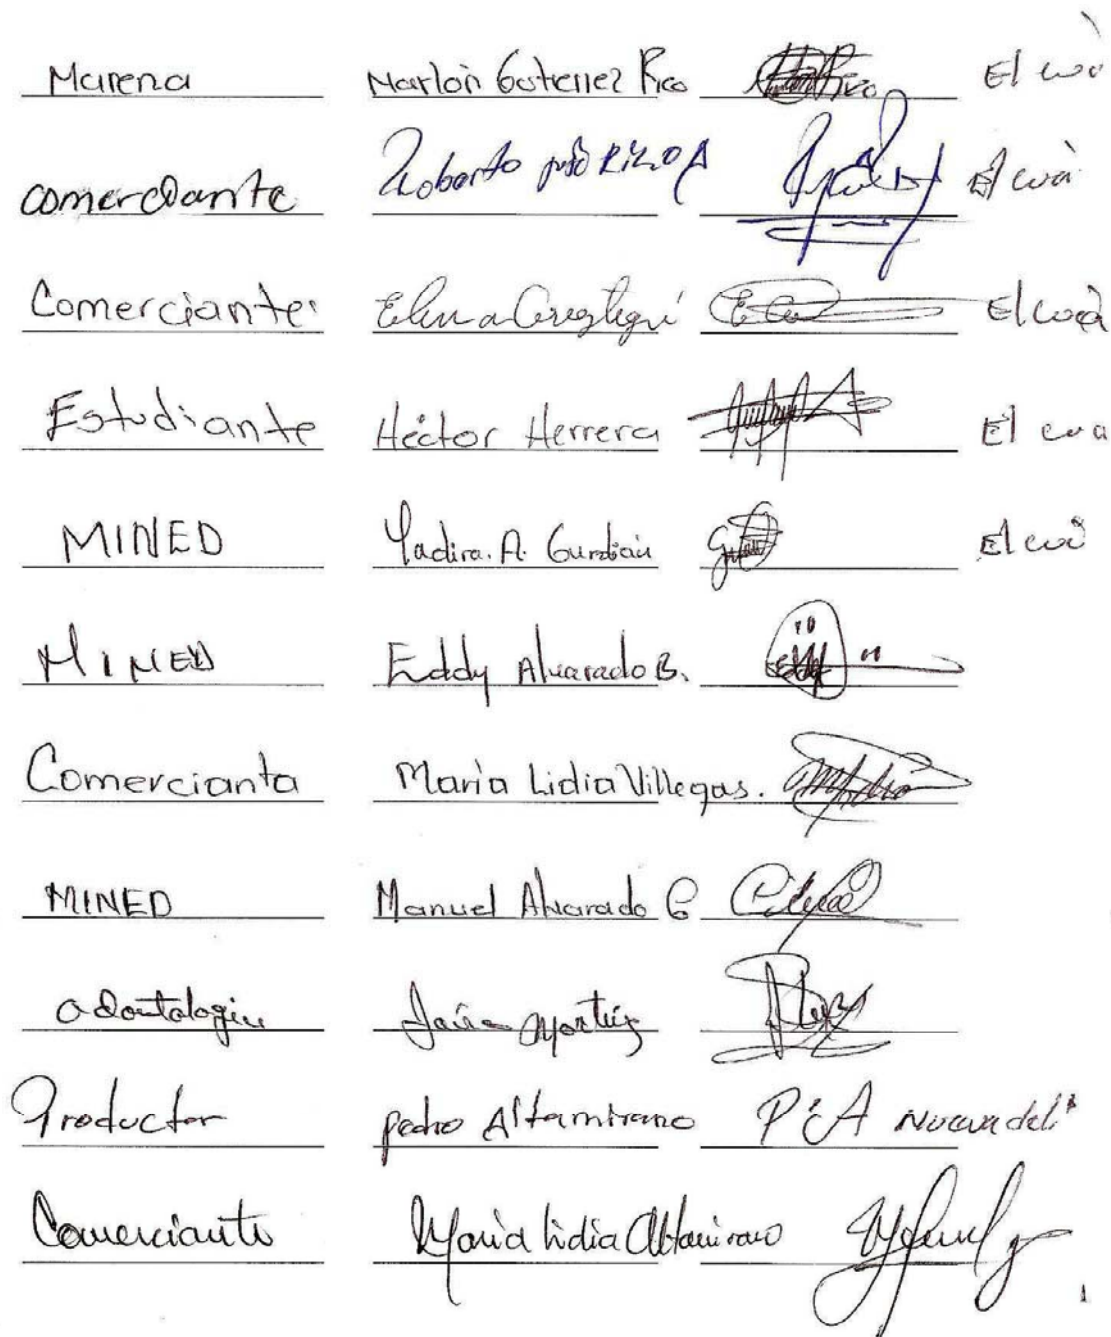 Marena Marlon Gutierrez Rico El cuà
comerciante Roberto José Rizo A El cuà
Comerciante Elena Areztegui El cuà
Estudiante Héctor Herrera El cua
MINED Yadira. A. Gurdián El cuà
MINED Eddy Alvarado B.
Comercianta María Lidia Villegas.
MINED Manuel Alvarado G
Productor pedro Altamirano P.A Nueva
Comerciante Maria Lidia Altamirano